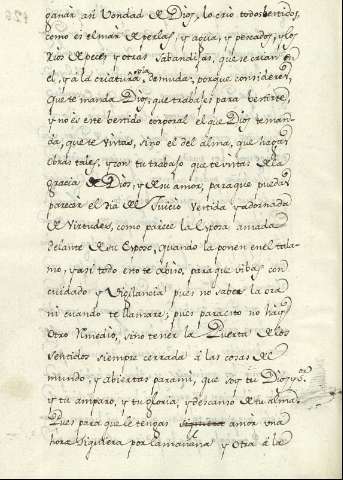 ganar así Vondad de Dios, lo crio todos bestidos,
como es el mar de perlas, y açcia, y pescados, y los
Rios de peces y otras sabandijas, que se crian en
el, y à la criatura desnuda, porque consideren
que te manda Dios, que trabajes para bestirte,
y no es este bestido corporal el que Dios te man
da, que te vistas, sinó el del alma, que hagas
obras tales, y con tu trabajo que te vistas de la
gracia de Dios, y de su amor, para que puedas
parecer el dia del Juicio Vestida y adornada
de Virtudes, como parece la Esposa amada
delante de su Esposo, quando la ponen en el tala-
mo, y así todo esto te abiso, para que vibas con
cuidado y Vigilancia pues no sabes la ora
ni cuando te llamare; pues para esto no hay
otro Remedio, sino tener la Puerta de los
sentidos siempre cerrada à las cosas del
mundo, y abiertas para mi, que soy tu Dios,
y tu amparo, y tu gloria, y descanso de tu alma.
Pues para que le tengas amor una
hora siquiera por la mañana y otra à la